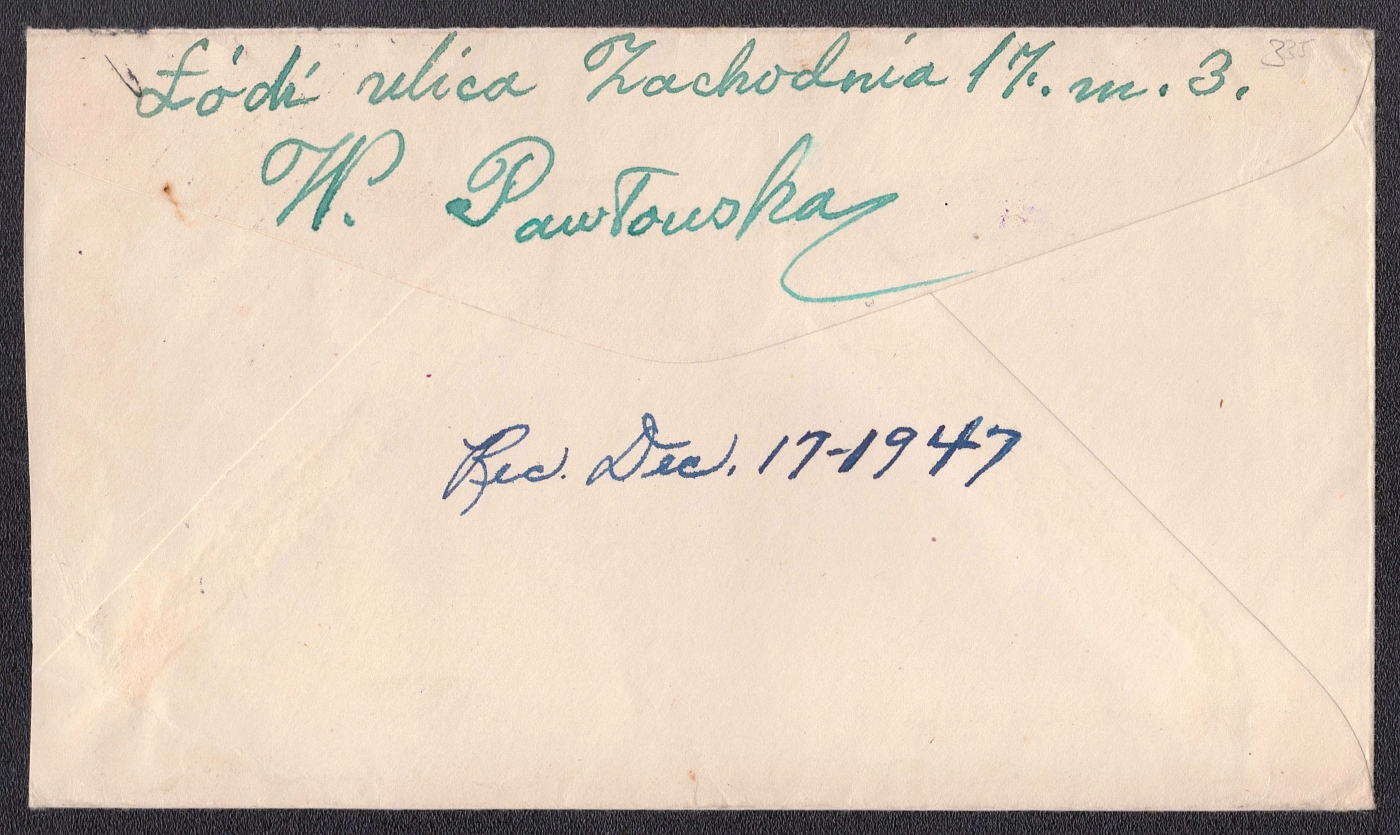 Łódź ulica Zachodnia 17. m. 3.
335
W. Pawłowska
Rec. Dec. 17-1947